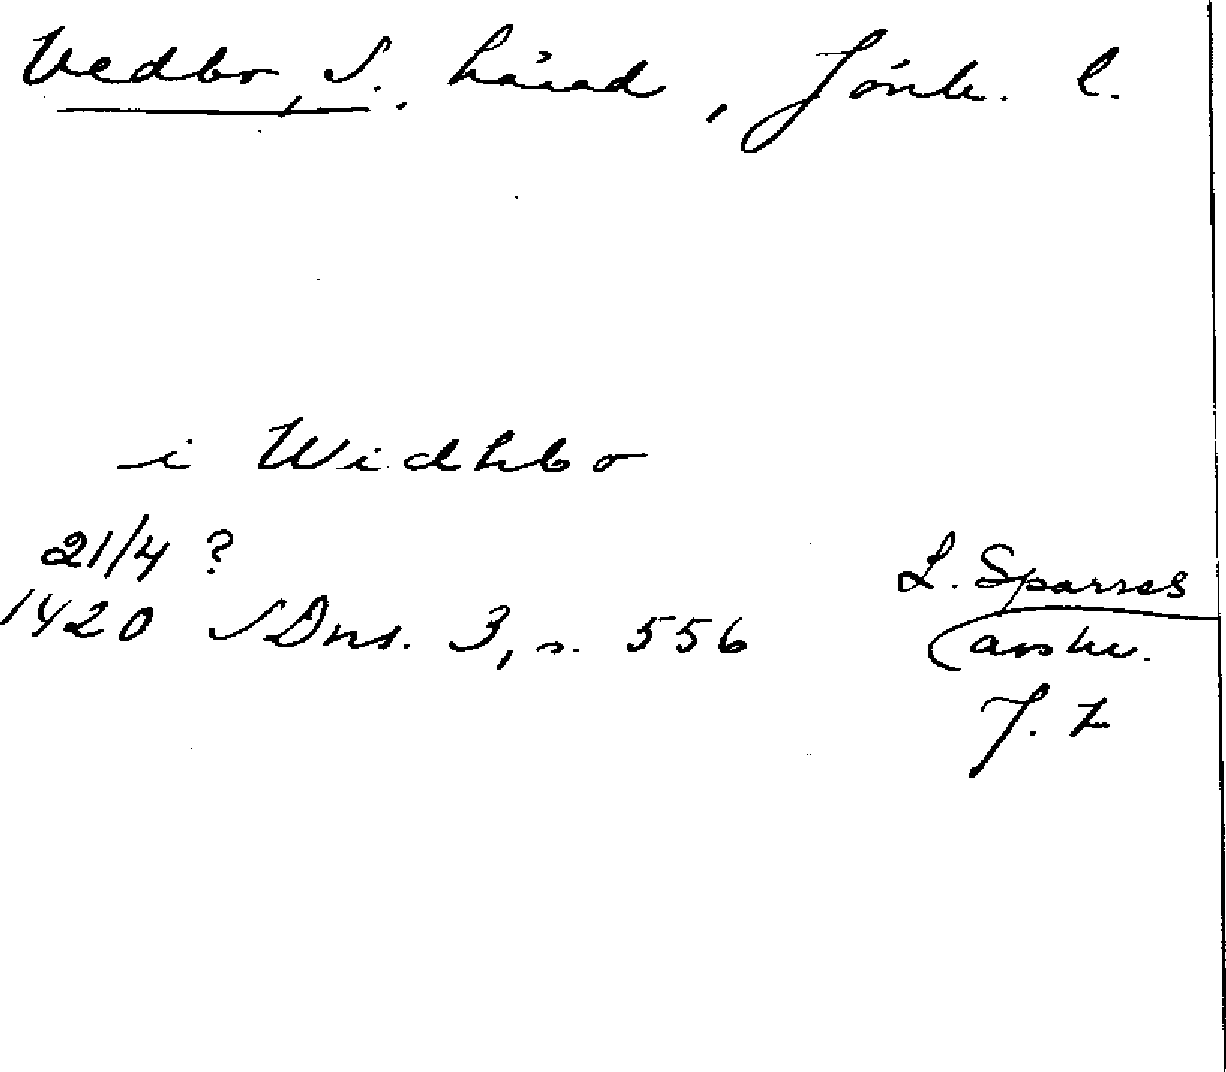 Vedbo, S. härad, Jönk. l.
i Widhbo
21/4 ?
1420 SDns. 3, s. 556
L. Sparres
avskr.
J. L